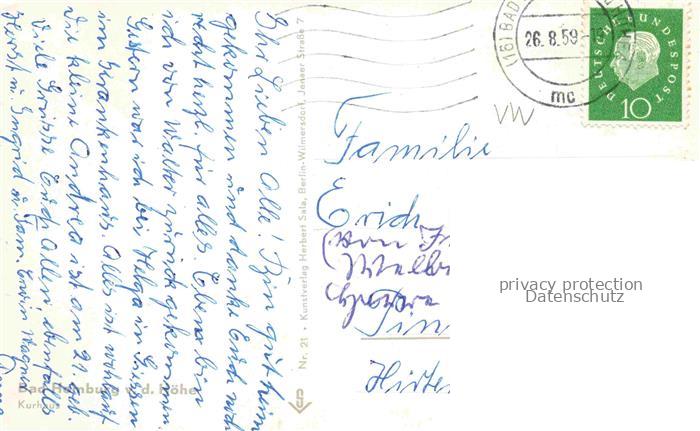 Ihr Lieben Alle! Bin gut heim
gekommen und danke Euch noch
recht herzl. für alles. Eben bin
ich von Walter zurück gekommen.
Gestern war ich bei Helga in Giessen
im Krankenhaus. Alles ist wohlauf
die kleine Andrea ist am 21. geb.
Viele Grüsse Euch Allen, ebenfalls
Horst u. Ingrid u. Fam. Erwin
Bad Homburg v. d. Höhe
Kurhaus
Nr. 21 • Kunstverlag Herbert Sala, Berlin-Wilmersdorf, Jenaer Straße 7
(16) BAD
26.8.59
mc
DEUTSCHE BUNDESPOST
10
VW
Familie
Erich
privacy protection
Datenschutz